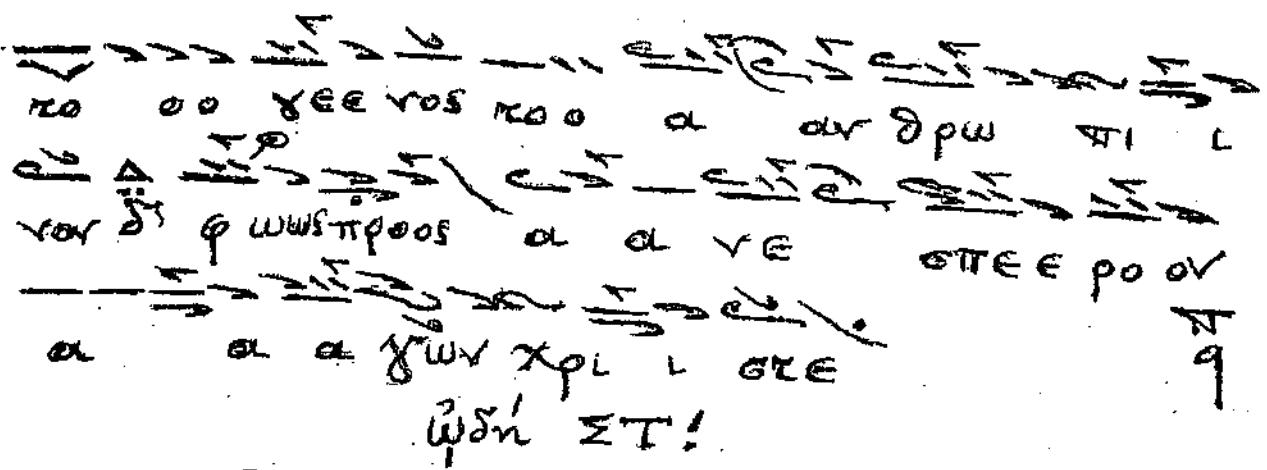 το οο γεε νος το ο α αν θρω πι ι
νον δ' φ ωως προος α α νε σπεε ρο ον
α α α γων χρι ι στε π q
ᾠδή ΣΤ!